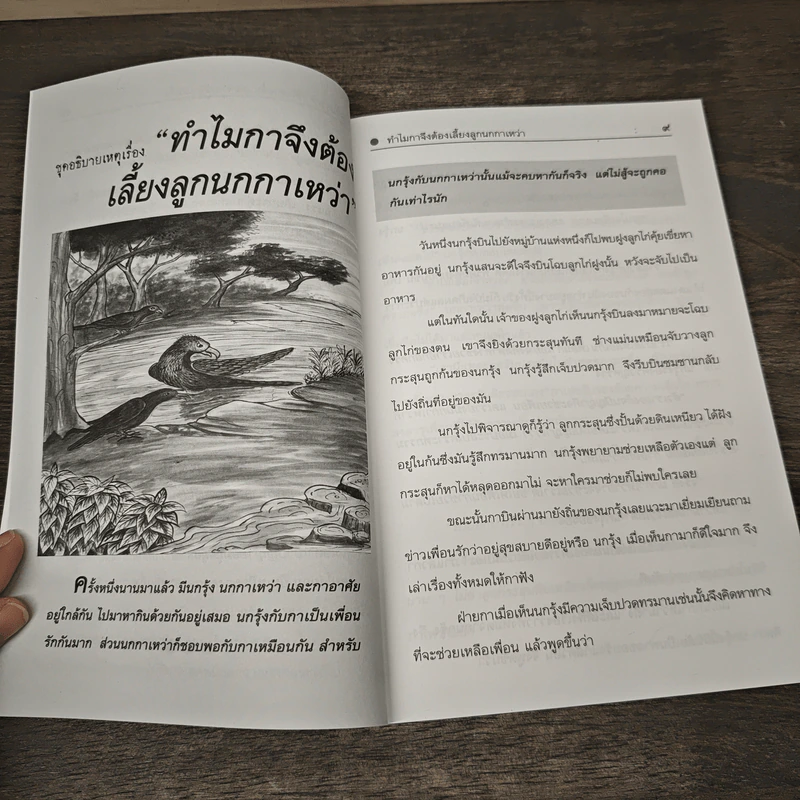 ชุดอธิบายเหตุเรื่อง “ทำไมกาจึงต้อง
เลี้ยงลูกนกกาเหว่า”
ครั้งหนึ่งนานมาแล้ว มีนกรุ้ง นกกาเหว่า และกาอาศัย
อยู่ใกล้กัน ไปมาหากินด้วยกันอยู่เสมอ นกรุ้งกับกาเป็นเพื่อน
รักกันมาก ส่วนนกกาเหว่าก็ชอบพอกับกาเหมือนกัน สำหรับ
ทำไมกาจึงต้องเลี้ยงลูกนกกาเหว่า ๙
นกรุ้งกับนกกาเหว่านั้นแม้จะคบหากันก็จริง แต่ไม่สู้จะถูกคอ
กันเท่าไรนัก
วันหนึ่งนกรุ้งบินไปยังหมู่บ้านแห่งหนึ่งก็ไปพบฝูงลูกไก่คุ้ยเขี่ยหา
อาหารกันอยู่ นกรุ้งแสนจะดีใจจึงบินโฉบลูกไก่ฝูงนั้น หวังจะจับไปเป็น
อาหาร
แต่ในทันใดนั้น เจ้าของฝูงลูกไก่เห็นนกรุ้งบินลงมาหมายจะโฉบ
ลูกไก่ของตน เขาจึงยิงด้วยกระสุนทันที ช่างแม่นเหมือนจับวางลูก
กระสุนถูกก้นของนกรุ้ง นกรุ้งรู้สึกเจ็บปวดมาก จึงรีบบินซมซานกลับ
ไปยังถิ่นที่อยู่ของมัน
นกรุ้งไปพิจารณาดูก็รู้ว่า ลูกกระสุนซึ่งปั้นด้วยดินเหนียว ได้ฝัง
อยู่ในก้นซึ่งมันรู้สึกทรมานมาก นกรุ้งพยายามช่วยเหลือตัวเองแต่ ลูก
กระสุนก็หาได้หลุดออกมาไม่ จะหาใครมาช่วยก็ไม่พบใครเลย
ขณะนั้นกาบินผ่านมายังถิ่นของนกรุ้งเลยแวะมาเยี่ยมเยียนถาม
ข่าวเพื่อนรักว่าอยู่สุขสบายดีอยู่หรือ นกรุ้ง เมื่อเห็นกามาก็ดีใจมาก จึง
เล่าเรื่องทั้งหมดให้กาฟัง
ฝ่ายกาเมื่อเห็นนกรุ้งมีความเจ็บปวดทรมานเช่นนั้นจึงคิดหาทาง
ที่จะช่วยเหลือเพื่อน แล้วพูดขึ้นว่า